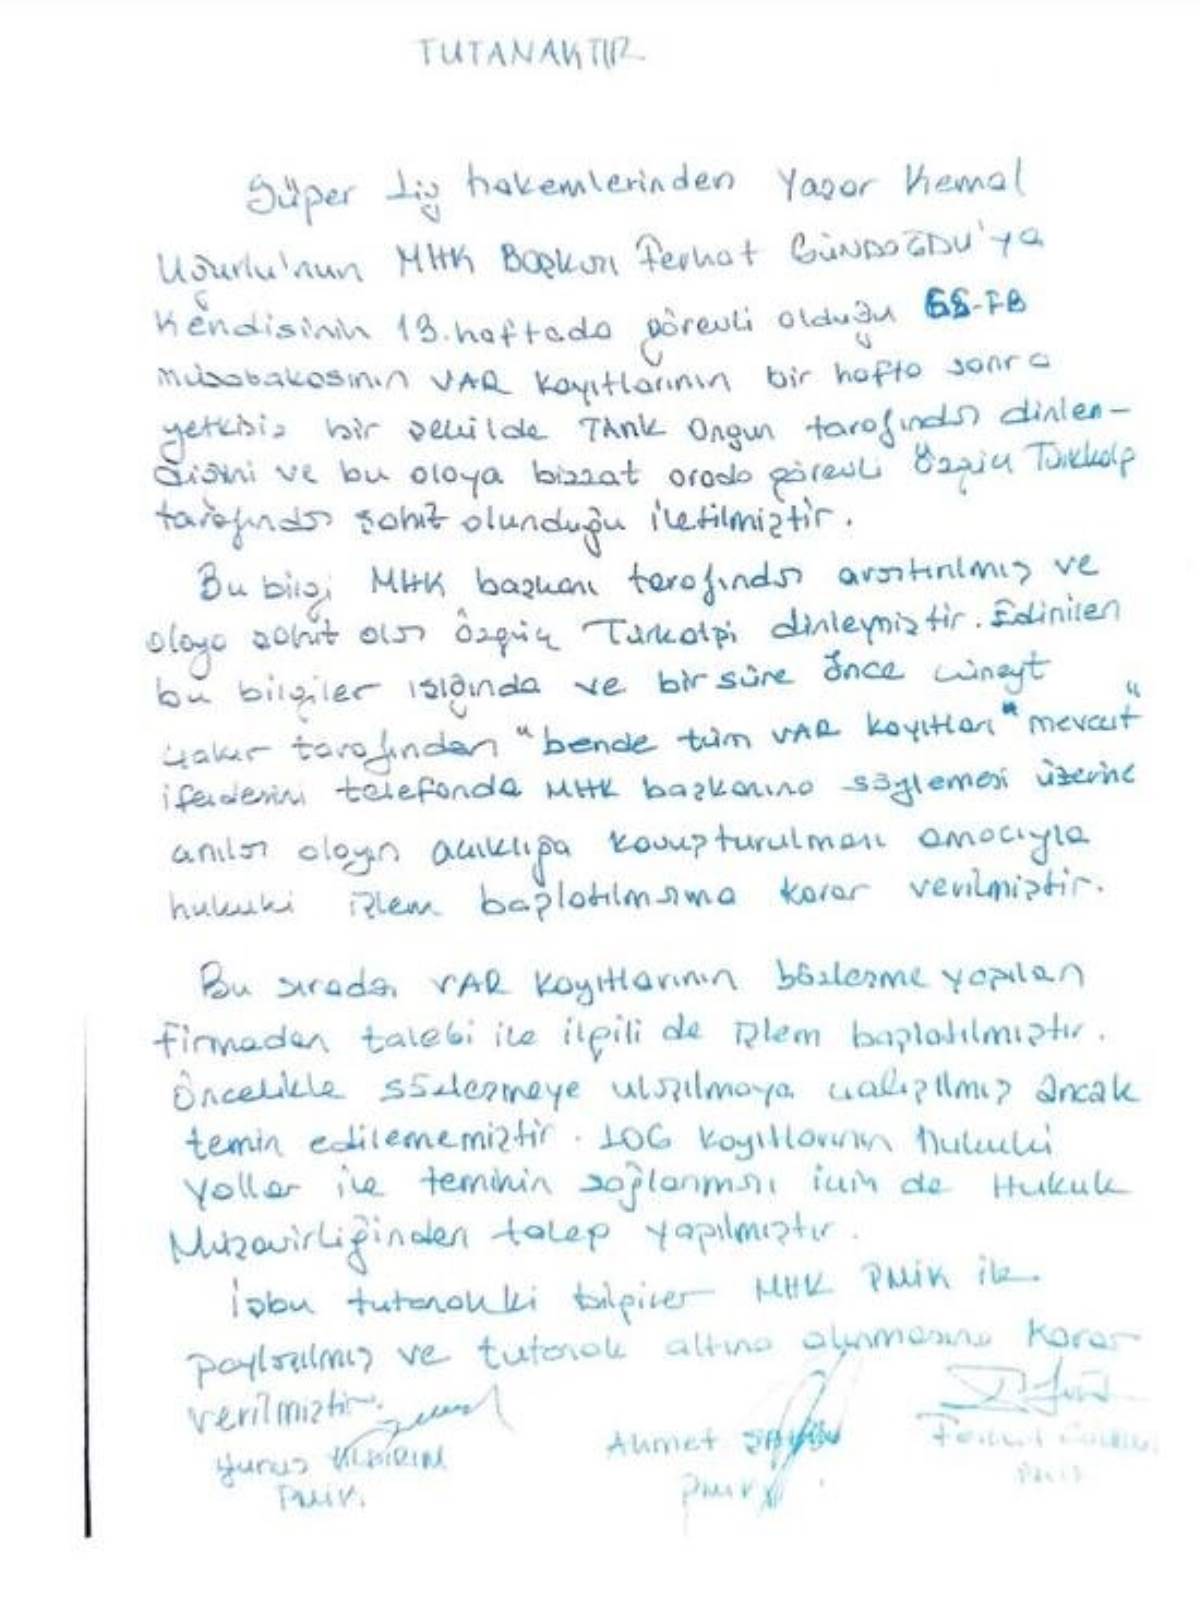 TUTANAKTIR
Süper Lig hakemlerinden Yaşar Kemal
Uğurlu'nun MHK Başkanı Ferhat GÜNDOĞDU'ya
kendisinin 13. haftada görevli olduğu GS-FB
müsabakasının VAR kayıtlarının bir hafta sonra
yetkisiz bir şekilde TARIK Ongun tarafından dinlen-
diğini ve bu olaya bizzat orada görevli Özgüç Türkalp
tarafından şahit olunduğu iletilmiştir.
Bu bilgi MHK başkanı tarafından araştırılmış ve
olaya şahit olan Özgüç Türkalpi dinleymiştir. Edinilen
bu bilgiler ışığında ve bir süre önce Cüneyt
Çakır tarafından "bende tüm VAR kayıtları" mevcut"
ifadesini telefonda MHK başkanına söylemesi üzerine
anılan olayın açıklığa kavuşturulması amacıyla
hukuki işlem başlatılmasına karar verilmiştir.
Bu sırada VAR kayıtlarının sözleşme yapılan
firmadan talebi ile ilgili de işlem başlatılmıştır.
Öncelikle sözleşmeye ulaşılmaya çalışılmış ancak
temin edilememiştir. LOG kayıtlarının hukuki
yollar ile teminin sağlanması için de Hukuk
Müşavirliğinden talep yapılmıştır.
İşbu tutanaktaki bilgiler MHK PMİK ile
paylaşılmış ve tutanak altına alınmasına karar
verilmiştir.
Yunus YILDIRIM Ahmet ŞAHİN Ferhat
PMİK. PMİK